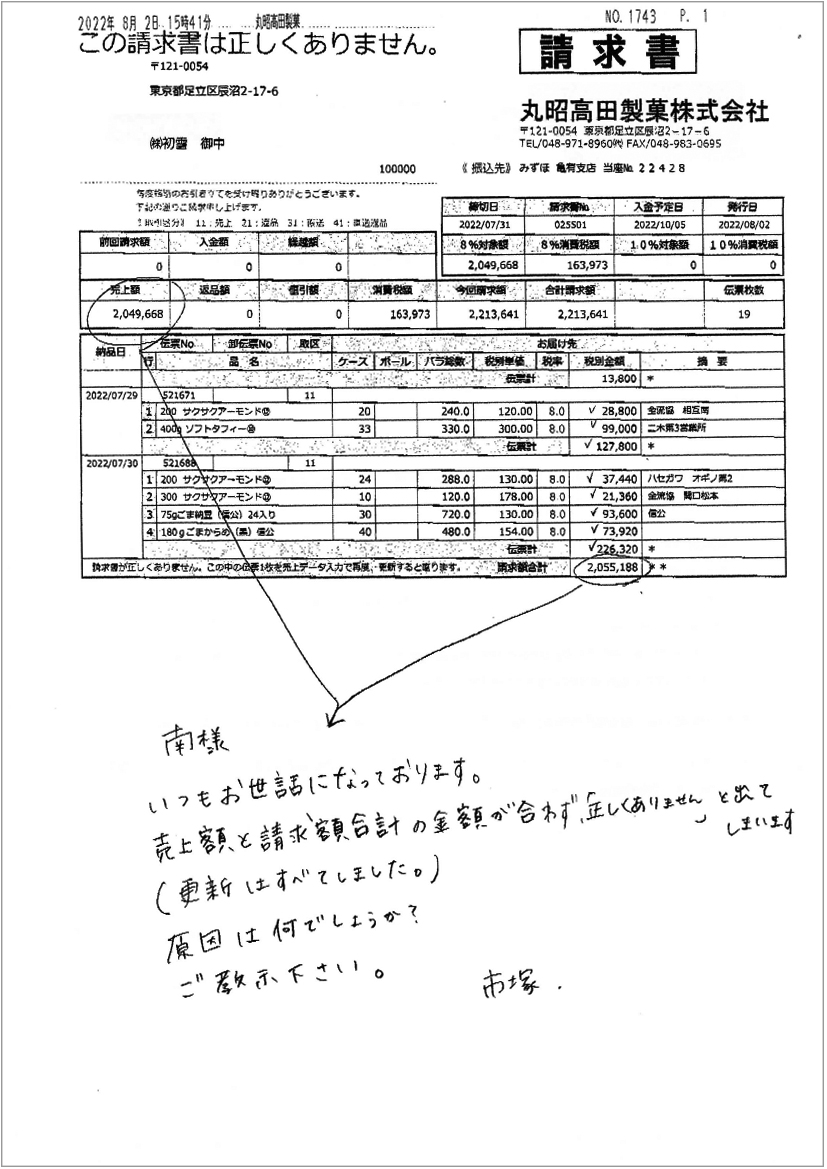 2022年 8月 2日 15時41分 丸昭高田製菓 NO. 1743 P. 1
この請求書は正しくありません。
請求書
〒121-0054
東京都足立区辰沼2-17-6
丸昭高田製菓株式会社
〒121-0054 東京都足立区辰沼2-17-6
TEL/048-971-8960㈹ FAX/048-983-0695
御中
100000
《 振込先》 みずほ 亀有支店 当座№ 22428
毎度格別のお引き立てを受け賜りありがとうございます。
下記の通りご請求申し上げます。
《取引区分》 11:売上 21:返品 31:直送 41:直送返品
締切日 請求書No 入金予定日 発行日
2022/07/31 025S01 2022/10/05 2022/08/02
8%対象額 8%消費税額 10%対象額 10%消費税額
2,049,668 163,973 0 0
前回請求額 入金額 繰越額
0 0 0
売上額 返品額 値引額 消費税額 今回請求額 合計請求額 伝票枚数
2,049,668 0 0 163,973 2,213,641 2,213,641 19
納品日 伝票No 卸伝票No 取区 お届け先
行 品名 ケース ボール バラ総数 税別単価 税率 税別金額 摘要
伝票計 13,800 *
2022/07/29 521671 11
1 200 サクサクアーモンド⑫ 20 240.0 120.00 8.0 ✓ 28,800 全流協
2 400g ソフトタフィー⑩ 33 330.0 300.00 8.0 ✓ 99,000 二木第3営業所
伝票計 ✓ 127,800 *
2022/07/30 521688 11
1 200 サクサクアーモンド⑫ 24 288.0 130.00 8.0 ✓ 37,440 ハセガワ オギノ第2
2 300 サクサクアーモンド⑫ 10 120.0 178.00 8.0 ✓ 21,360 全流協 関口松本
3 75gごま納豆(信公)24入り 30 720.0 130.00 8.0 ✓ 93,600 信公
4 180gごまからめ(黒)信公 40 480.0 154.00 8.0 ✓ 73,920
伝票計 ✓ 226,320 *
請求書が正しくありません。この中の伝票1枚を売上データ入力で再度、更新すると直ります。 請求額合計 2,055,188 **
南様
いつもお世話になっております。
売上額と請求額合計の金額が合わず、「正しくありません」と出て
しまいます
(更新はすべてしました。)
原因は何でしょうか?
ご教示下さい。
市塚.